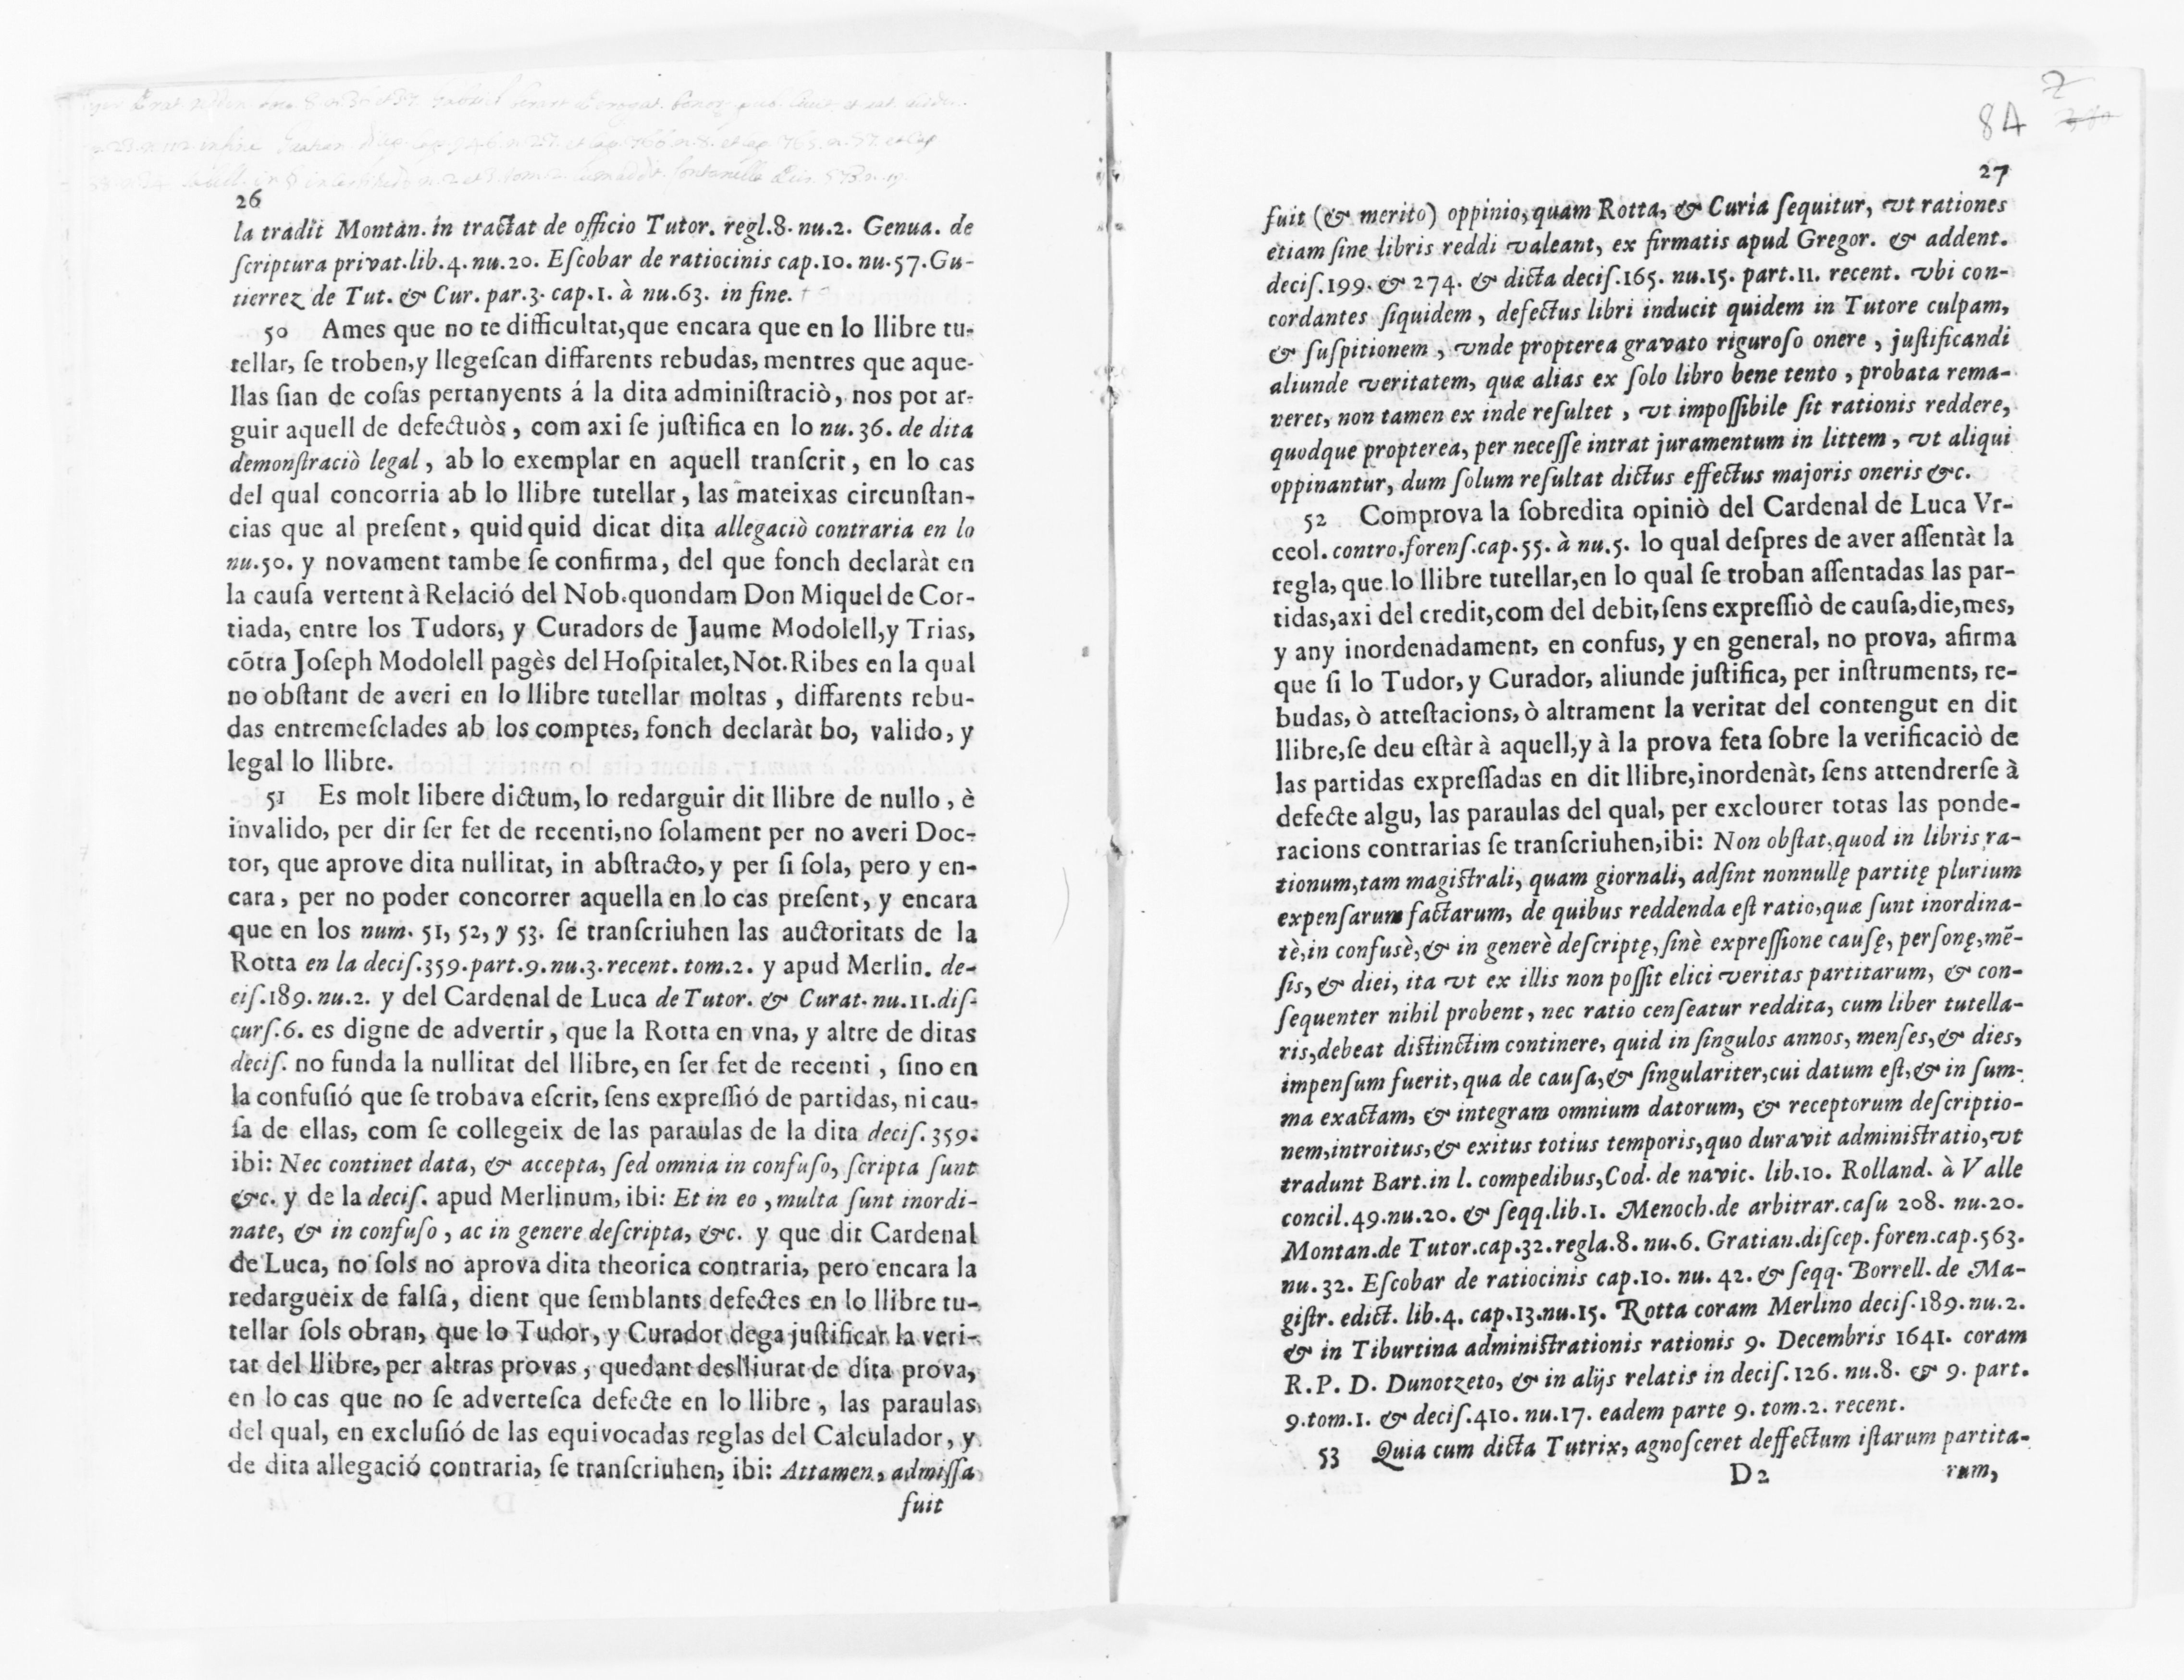 26
la tradit Montan. in tractat de officio Tutor. regl.8. nu.2. Genua. de
ſcriptura privat.lib.4. nu.20. Eſcobar de ratiocinis cap.10. nu.57. Gu-
tierrez de Tut. & Cur. par.3. cap.1. à nu.63. in fine.
50 Ames que no te difficultat,que encara que en lo llibre tu-
tellar, ſe troben,y llegeſcan differents rebudas, mentres que aque-
llas ſian de coſas pertanyents á la dita adminiſtraciò, nos pot ar-
guir aquell de defectuòs, com axi ſe juſtifica en lo nu. 36. de dita
demonſtraciò legal, ab lo exemplar en aquell tranſcrit, en lo cas
del qual concorria ab lo llibre tutellar, las mateixas circunſtan-
cias que al preſent, quid quid dicat dita allegaciò contraria en lo
nu.50. y novament tambe ſe confirma, del que fonch declaràt en
la cauſa vertent à Relació del Nob.quondam Don Miquel de Cor-
tiada, entre los Tudors, y Curadors de Jaume Modolell,y Trias,
cōtra Joſeph Modolell pagès del Hoſpitalet,Not.Ribes en la qual
no obſtant de averi en lo llibre tutellar moltas, differents rebu-
das entremeſclades ab los comptes, fonch declaràt bo, valido, y
legal lo llibre.
51 Es molt libere dictum, lo redarguir dit llibre de nullo, è
invalido, per dir ſer fet de recenti,no ſolament per no averi Doc-
tor, que aprove dita nullitat, in abſtracto, y per ſi ſola, pero y en-
cara, per no poder concorrer aquella en lo cas preſent, y encara
que en los num. 51, 52, y 53. ſe tranſcriuhen las auctoritats de la
Rotta en la deciſ.359.part.9.nu.3.recent. tom.2. y apud Merlin. de-
ciſ.189.nu.2. y del Cardenal de Luca de Tutor. & Curat. nu.11.diſ-
curſ.6. es digne de advertir, que la Rotta en vna, y altre de ditas
deciſ. no funda la nullitat del llibre, en ſer fet de recenti, ſino en
la confuſió que ſe trobava eſcrit, ſens expreſſió de partidas, ni cau-
ſa de ellas, com ſe collegeix de las paraulas de la dita deciſ. 359.
ibi: Nec continet data, & accepta, ſed omnia in confuſo, ſcripta ſunt
&c. y de la deciſ. apud Merlinum, ibi: Et in eo, multa ſunt inordi-
nate, & in confuſo, ac in genere deſcripta, &c. y que dit Cardenal
de Luca, no ſols no aprova dita theorica contraria, pero encara la
redargueix de falſa, dient que ſemblants defectes en lo llibre tu-
tellar ſols obran, que lo Tudor, y Curador dega juſtificar la veri-
tat del llibre, per altras provas, quedant deslliurat de dita prova,
en lo cas que no ſe adverteſca defecte en lo llibre, las paraulas
del qual, en excluſió de las equivocadas reglas del Calculador, y
de dita allegació contraria, ſe tranſcriuhen, ibi: Attamen, admiſſa
fuit
84
27
fuit (& merito) oppinio, quam Rotta, & Curia ſequitur, vt rationes
etiam ſine libris reddi valeant, ex firmatis apud Gregor. & addent.
deciſ.199. & 274. & dicta deciſ.165. nu.15. part.11. recent. vbi con-
cordantes ſiquidem, defectus libri inducit quidem in Tutore culpam,
& ſuſpitionem, vnde propterea gravato riguroſo onere, juſtificandi
aliunde veritatem, quæ alias ex ſolo libro bene tento, probata rema-
neret, non tamen ex inde reſultet, vt impoſſibile ſit rationis reddere,
quodque propterea, per neceſſe intrat juramentum in littem, vt aliqui
oppinantur, dum ſolum reſultat dictus effectus majoris oneris &c.
52 Comprova la ſobredita opiniò del Cardenal de Luca Vr-
ceol. contro.forenſ.cap.55. à nu.5. lo qual deſpres de aver aſſentàt la
regla, que lo llibre tutellar,en lo qual ſe troban aſſentadas las par-
tidas,axi del credit,com del debit,ſens expreſſiò de cauſa,die,mes,
y any inordenadament, en confus, y en general, no prova, afirma
que ſi lo Tudor, y Curador, aliunde juſtifica, per inſtruments, re-
budas, ò atteſtacions, ò altrament la veritat del contengut en dit
llibre,ſe deu eſtàr à aquell,y à la prova feta ſobre la verificaciò de
las partidas expreſſadas en dit llibre,inordenàt, ſens attendrerſe à
defecte algu, las paraulas del qual, per exclourer totas las ponde-
racions contrarias ſe tranſcriuhen,ibi: Non obſtat,quod in libris ra-
tionum,tam magiſtrali, quam giornali, adſint nonnullę partitę plurium
expenſarum factarum, de quibus reddenda eſt ratio,quæ ſunt inordina-
tè,in confusè,& in generè deſcriptę,ſinè expreſſione cauſę, perſonę,mē-
ſis, & diei, ita vt ex illis non poſſit elici veritas partitarum, & con-
ſequenter nihil probent, nec ratio cenſeatur reddita, cum liber tutella-
ris,debeat diſtinctim continere, quid in ſingulos annos, menſes,& dies,
impenſum fuerit, qua de cauſa,& ſingulariter,cui datum eſt,& in ſum-
ma exactam, & integram omnium datorum, & receptorum deſcriptio-
nem,introitus,& exitus totius temporis,quo duravit adminiſtratio,vt
tradunt Bart.in l. compedibus,Cod. de navic. lib.10. Rolland. à Valle
concil.49.nu.20. & ſeqq.lib.1. Menoch.de arbitrar.caſu 208. nu.20.
Montan.de Tutor.cap.32.regla.8. nu.6. Gratian.diſcep.foren.cap.563.
nu.32. Eſcobar de ratiocinis cap.10. nu. 42. & ſeqq. Borrell. de Ma-
giſtr. edict. lib.4. cap.13.nu.15. Rotta coram Merlino deciſ.189.nu.2.
& in Tiburtina adminiſtrationis rationis 9. Decembris 1641. coram
R.P. D. Dunotzeto, & in alijs relatis in deciſ.126. nu.8. & 9. part.
9.tom.1. & deciſ.410. nu.17. eadem parte 9. tom.2. recent.
53 Quia cum dicta Tutrix, agnoſceret deffectum iſtarum partita-
D2 rum,